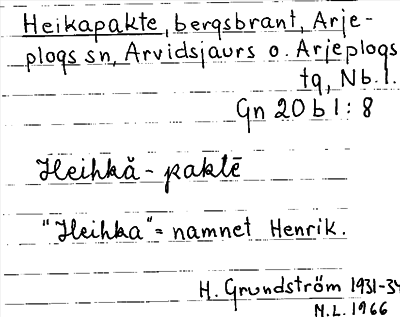 Heikapakte, bergsbrant, Arje-
plogs sn, Arvidsjaurs o. Arjeplogs
tg, Nb.l.
Gn 20 b 1:8
Heihkă-paktē
"Heihka" = namnet Henrik.
H. Grundström 1931-34
M.L. 1966